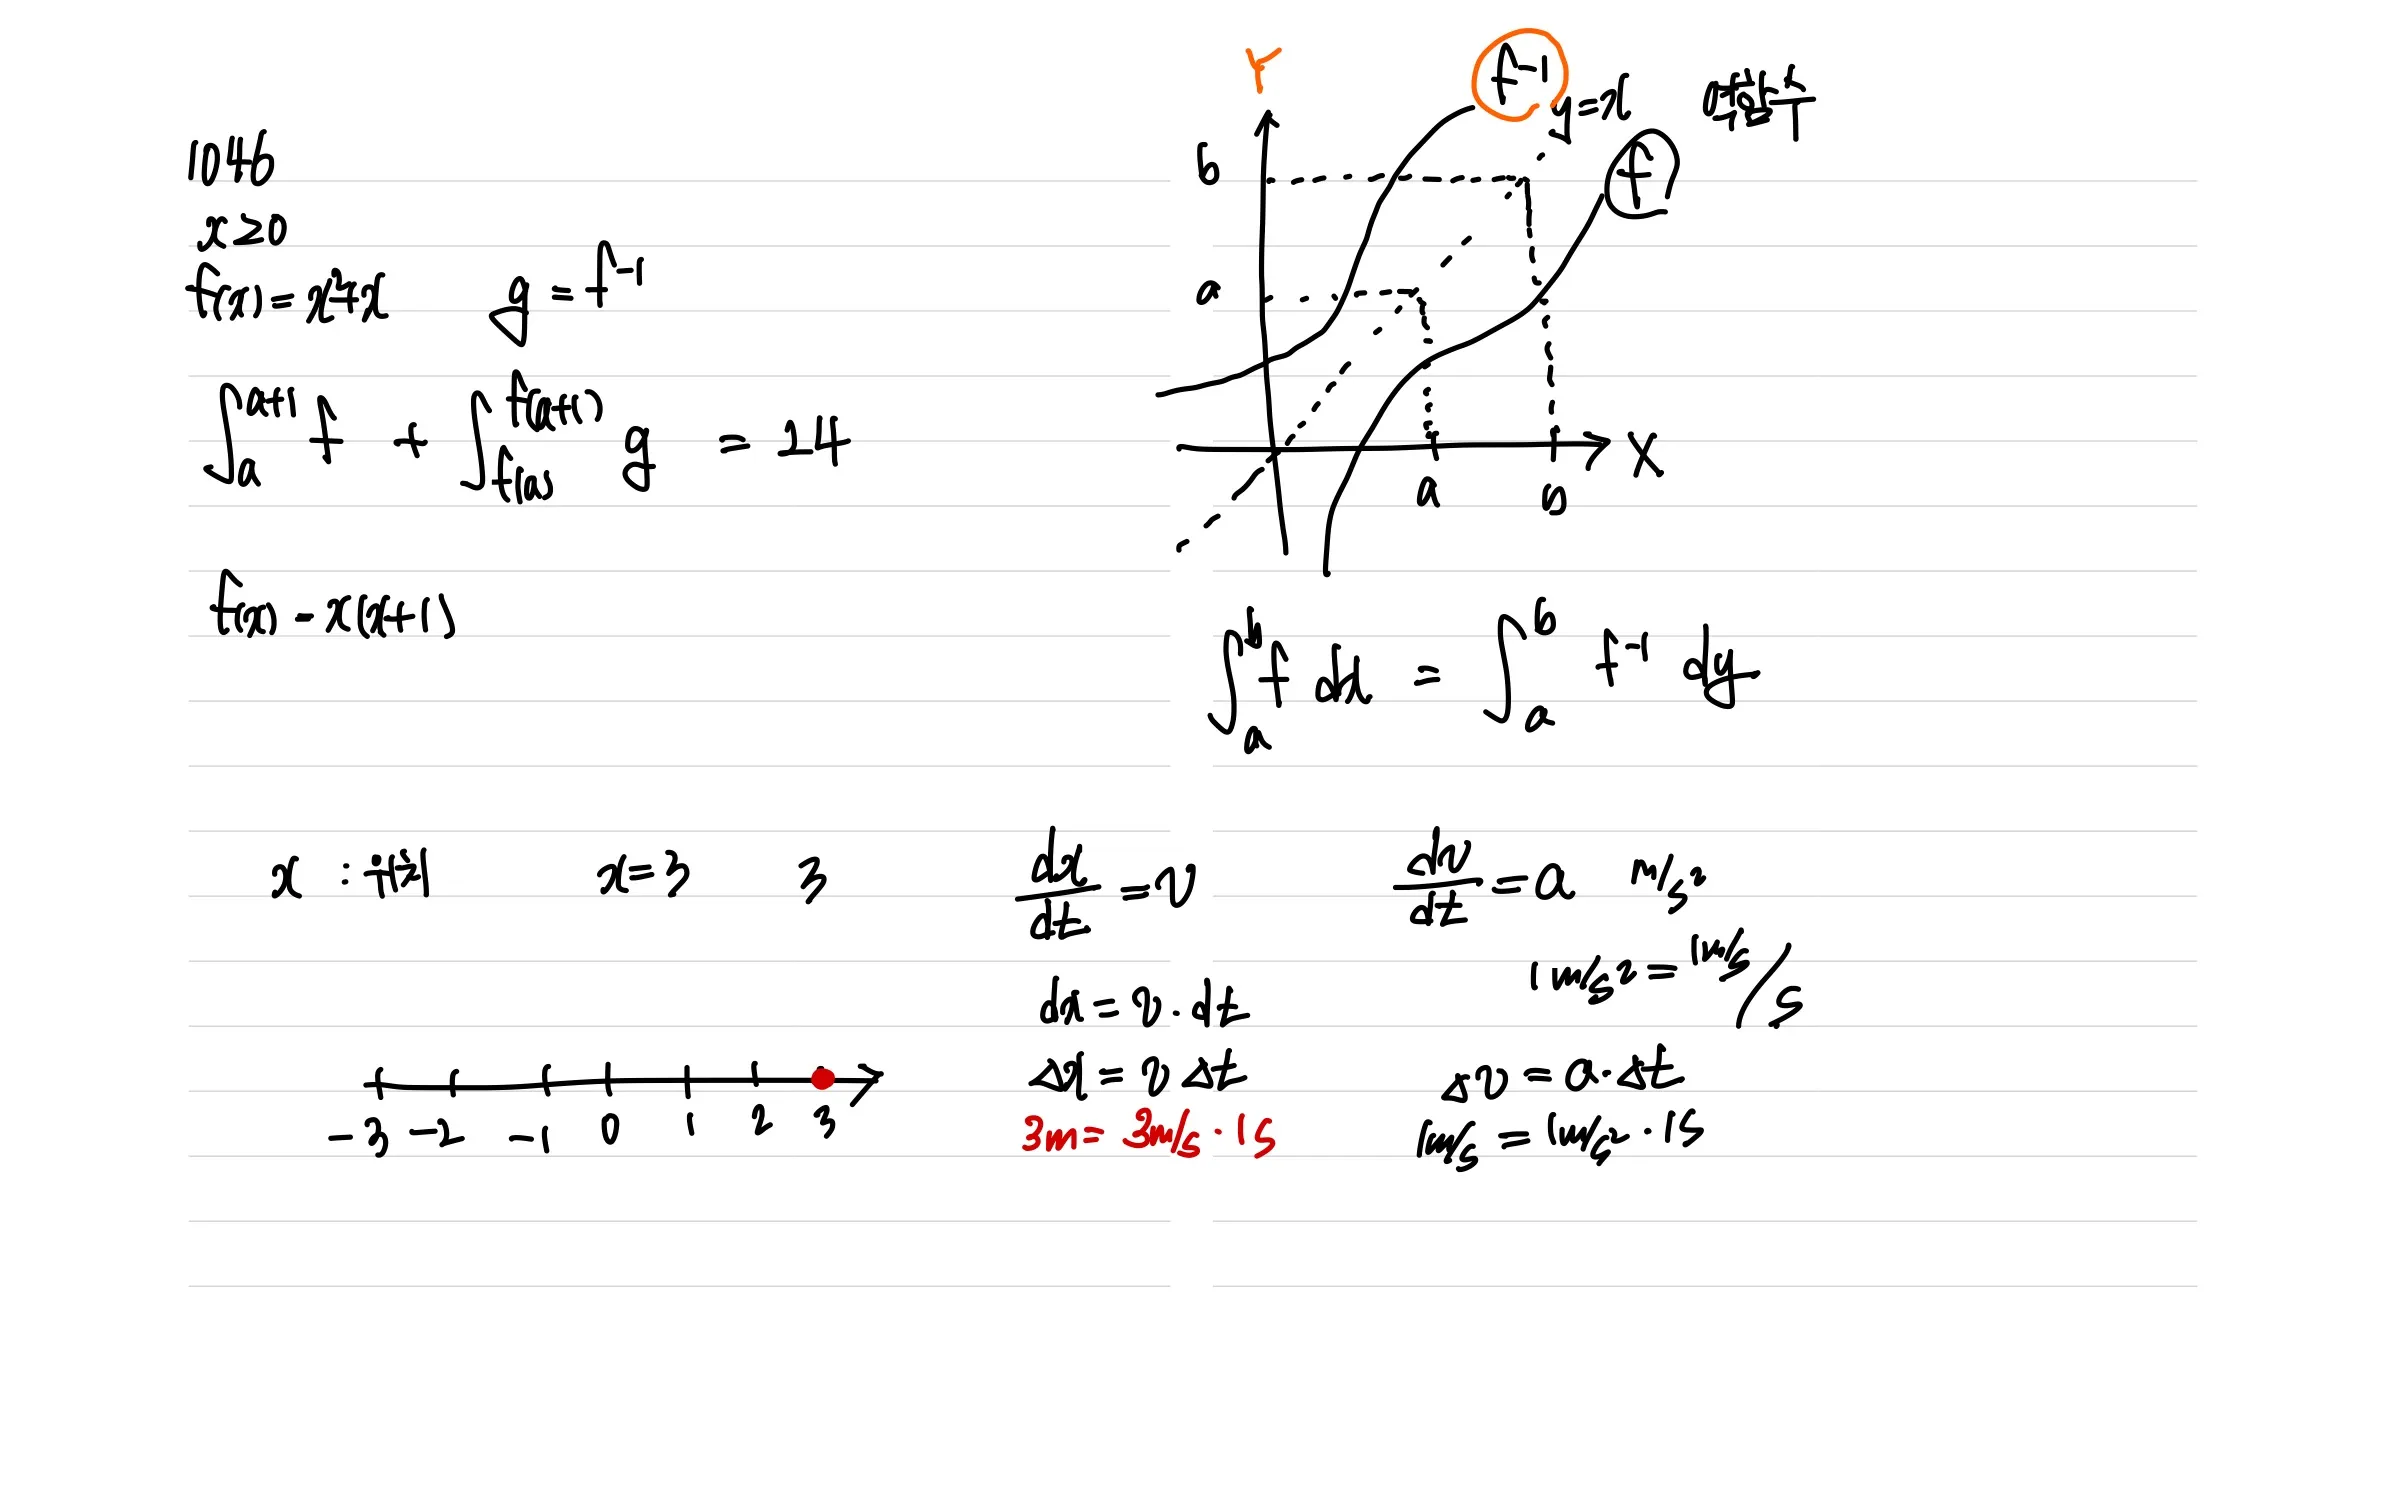 1046
x≥0
f(x)=x²+x g=f⁻¹
∫ₐᵃ⁺¹ f + ∫_f(a)^f(a+1) g = 24
f(x)=x(x+1)
Y
f⁻¹
y=x
f
b
a
X
a b
∫ₐᵇ f dx = ∫ₐᵇ f⁻¹ dy
x : 위치 x=3 3
dx/dt = v
dx = v·dt
Δx = v Δt
3m = 3m/s·1s
dv/dt = a m/s²
1m/s² = 1m/s/s
Δv = a·Δt
1m/s = 1m/s²·1s
-3 -2 -1 0 1 2 3